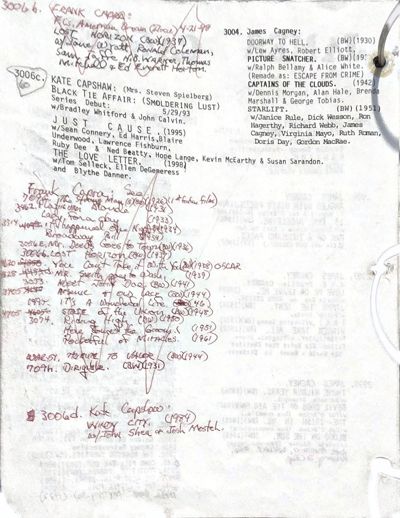 3006b. FRANK CAPRA:
LOST HORIZON (BW)(1937)
w/Jane Wyatt, Ronald Coleman,
Sam H.B. Warner, Thomas
Mitchell & Ed Everett Horton.
3006c.
KATE CAPSHAW: (Mrs. Steven Spielberg)
BLACK TIE AFFAIR: (SMOLDERING LUST)
Series Debut: 5/29/93
w/Bradley Whitford & John Calvin.
JUST CAUSE. (1995)
w/Sean Connery, Ed Harris, Blaire
Underwood, Lawrence Fishburn,
Ruby Dee & Ned Beatty, Hope Lange, Kevin McCarthy & Susan Sarandon.
THE LOVE LETTER. (1998)
w/Tom Selleck, Ellen DeGeneress
and Blythe Danner.
3004. James Cagney:
DOORWAY TO HELL. (BW)(1930)
w/Lew Ayres, Robert Elliott,
PICTURE SNATCHER. (BW)(1933)
w/Ralph Bellamy & Alice White.
(Remade as: ESCAPE FROM CRIME)
CAPTAINS OF THE CLOUDS. (1942)
w/Dennis Morgan, Alan Hale, Brenda
Marshall & George Tobias.
STARLIFT. (BW)(1951)
w/Janice Rule, Dick Wesson, Ron
Hagerthy, Richard Webb, James
Cagney, Virginia Mayo, Ruth Roman,
Doris Day, Gordon MacRae.
Frank Capra: See
The Strong Man (BW)(1926)
Lady for a day (1933)
It Happened One Night (1934)
Broadway Bill
Mr. Deeds Goes to Town (BW)(1936)
Lost Horizon (BW)(1937)
You Can't Take it With You (BW)(1938) OSCAR
Mr. Smith (1939)
3073. Meet John Doe (BW)(1941)
Arsenic & Old Lace (BW)(1944)
It's A Wonderful Life (BW)(46)
State of the Union (BW)(1948)
3074. Riding High (BW)(1950)
Here Comes the Groom (1951)
Pocketful of Miracles. (1961)
(BW)(1944)
709h. Dirigible. (BW)(1931)
3006d. Kate Capshaw:
WINDY CITY. (1984)
w/John Shea & Josh Mostel.